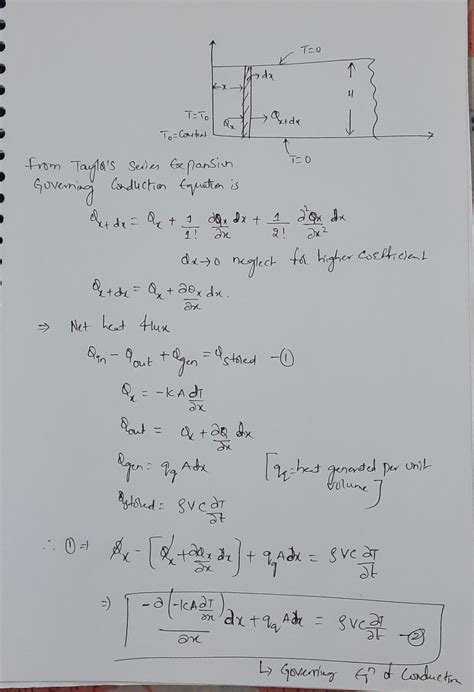 T=0
dx
x
4
T=T₀
Qₓ
Qₓ₊dₓ
T₀=Constant
T=0
From Taylor's Series Expansion
Governing Conduction Equation is
Qₓ₊dₓ = Qₓ + 1/1! ∂Qₓ/∂x dx + 1/2! ∂²Qₓ/∂x² dx
dx→0 neglect for higher coefficient
Qₓ₊dₓ = Qₓ + ∂Qₓ/∂x dx.
⇒ Net heat flux
Qin - Qout + Qgen = Qstored -①
Qₓ = -kA dT/∂x
Qout = Qₓ + ∂Q/∂x dx
Qgen = qg Adx [qg=heat generated per unit
volume]
Qstored = ρVC ∂T/∂t
∴ ①⇒ Qₓ - [Qₓ + ∂Qₓ/∂x dx] + qg Adx = ρVC ∂T/∂t
⇒ -∂(-kA ∂T/∂x)/∂x dx + qg Adx = ρVC ∂T/∂t -②
↳ Governing Eqⁿ of Conduction